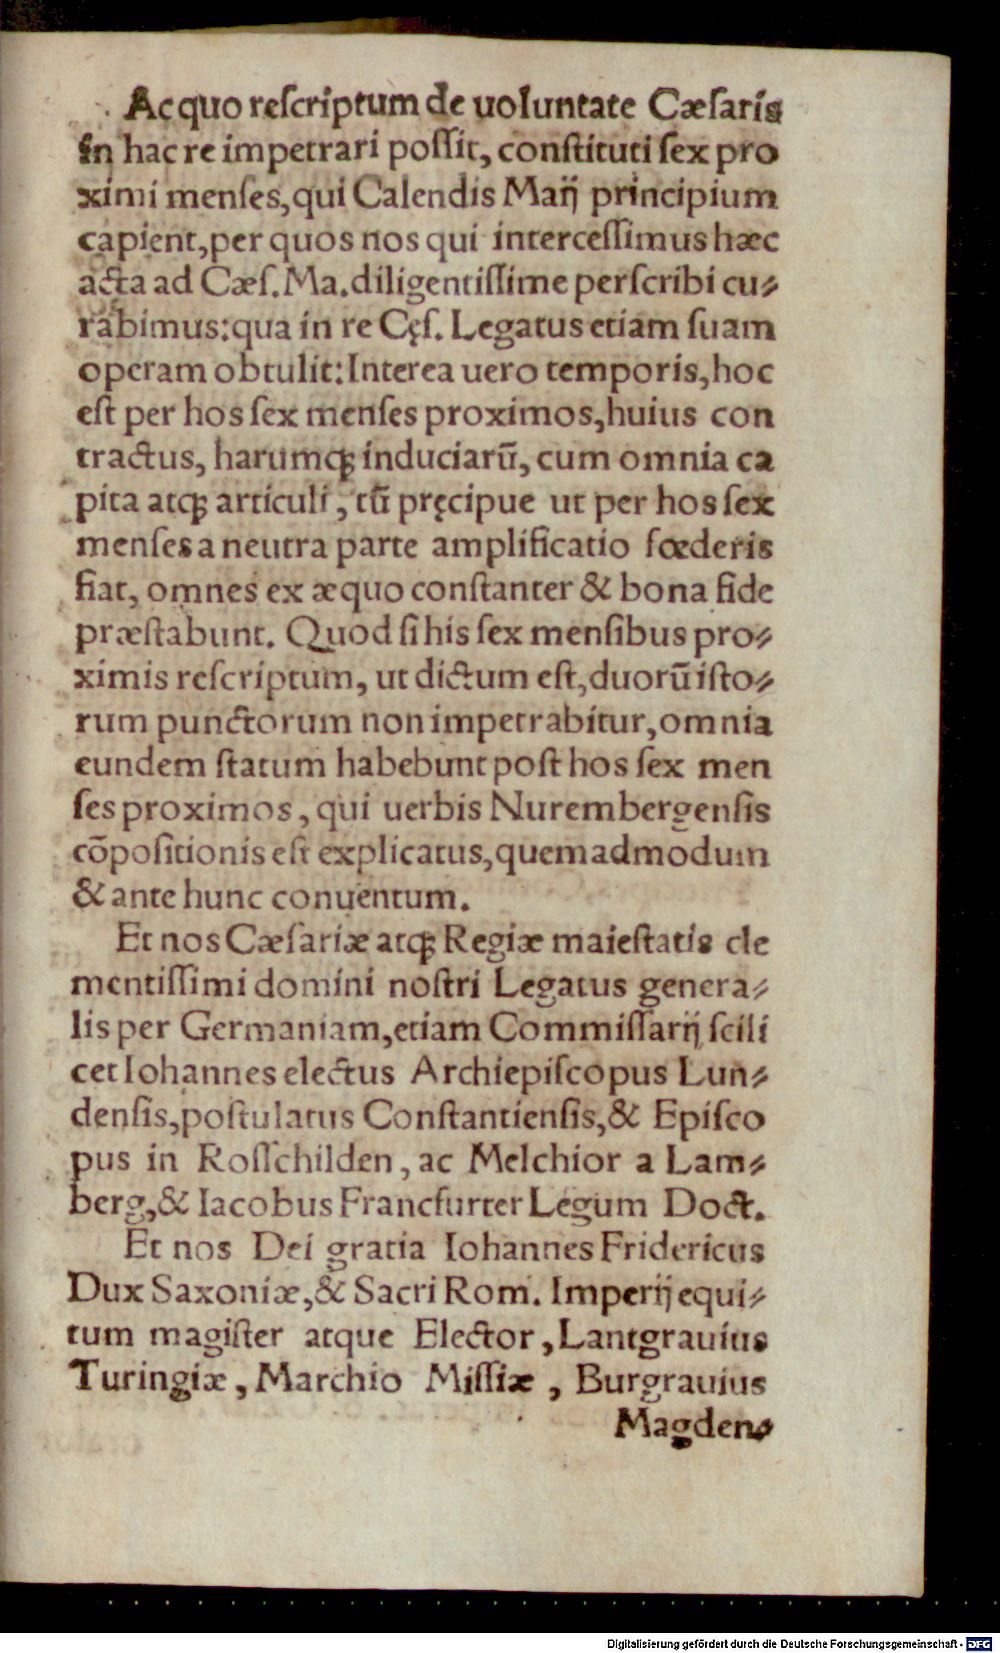 Ac quo reſcriptum de uoluntate Cæſaris
in hac re impetrari poſſit, conſtituti ſex pro
ximi menſes, qui Calendis Maij principium
capient, per quos nos qui interceſſimus hæc
acta ad Cæſ. Ma. diligentiſſime perſcribi cu⸗
rabimus: qua in re Cęſ. Legatus etiam ſuam
operam obtulit: Interea uero temporis, hoc
eſt per hos ſex menſes proximos, huius con
tractus, harumqꝫ induciarũ, cum omnia ca
pita atqꝫ articuli, tũ pręcipue ut per hos ſex
menſes a neutra parte amplificatio fœderis
fiat, omnes ex æquo conſtanter & bona fide
præſtabunt. Quod ſi his ſex menſibus pro⸗
ximis reſcriptum, ut dictum eſt, duorũ iſto⸗
rum punctorum non impetrabitur, omnia
eundem ſtatum habebunt poſt hos ſex men
ſes proximos, qui uerbis Nurembergenſis
cõpoſitionis eſt explicatus, quemadmodum
& ante hunc conuentum.
Et nos Cæſariæ atqꝫ Regiæ maieſtatis cle
mentiſſimi domini noſtri Legatus genera⸗
lis per Germaniam, etiam Commiſſarij ſcili
cet Iohannes electus Archiepiſcopus Lun⸗
denſis, poſtulatus Conſtantienſis, & Epiſco
pus in Roſſchilden, ac Melchior a Lam⸗
berg, & Iacobus Francfurter Legum Doct.
Et nos Dei gratia Iohannes Fridericus
Dux Saxoniæ, & Sacri Rom. Imperij equi⸗
tum magiſter atque Elector, Lantgrauius
Turingiæ, Marchio Miſſiæ, Burgrauius
Magden⸗
Digitalisierung gefördert durch die Deutsche Forschungsgemeinschaft - DFG